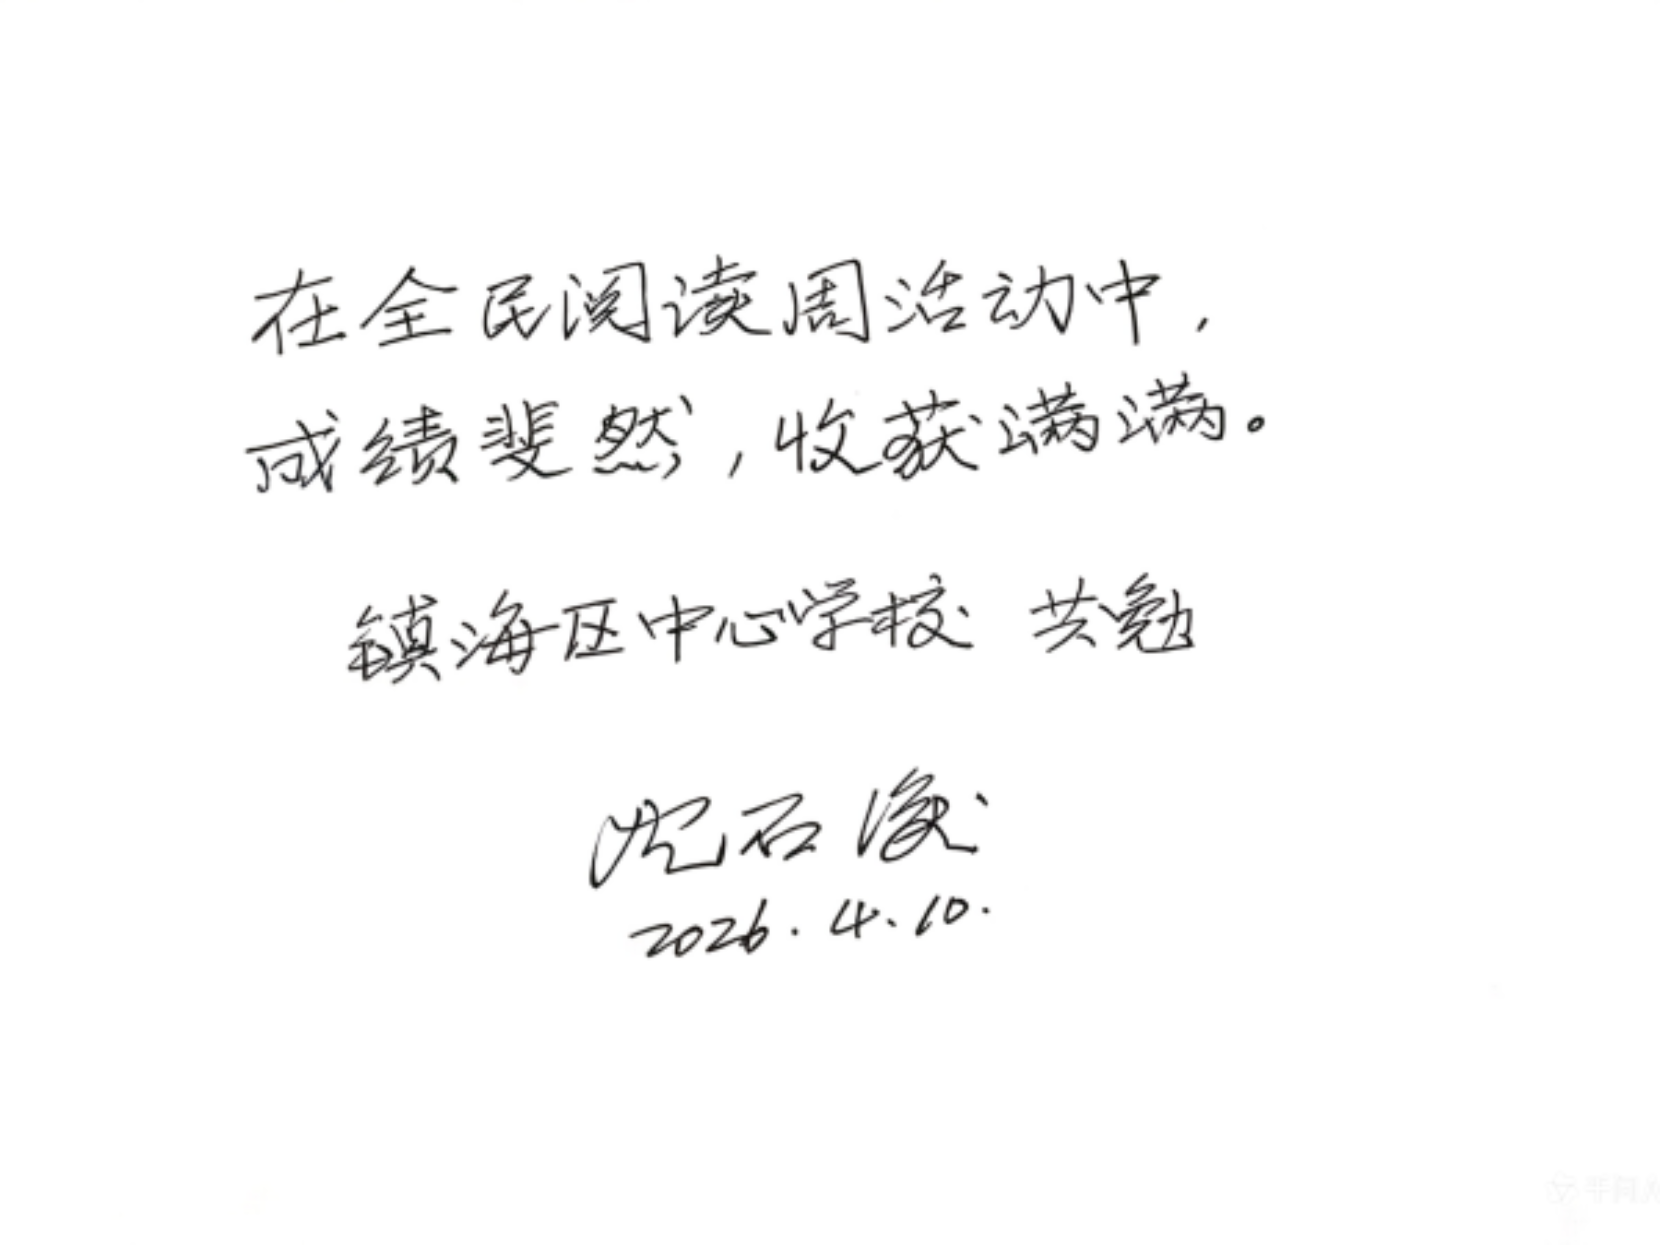 在全民阅读周活动中，
成绩斐然，收获满满。
镇海区中心学校 共勉
沈石溪
2026.4.10.